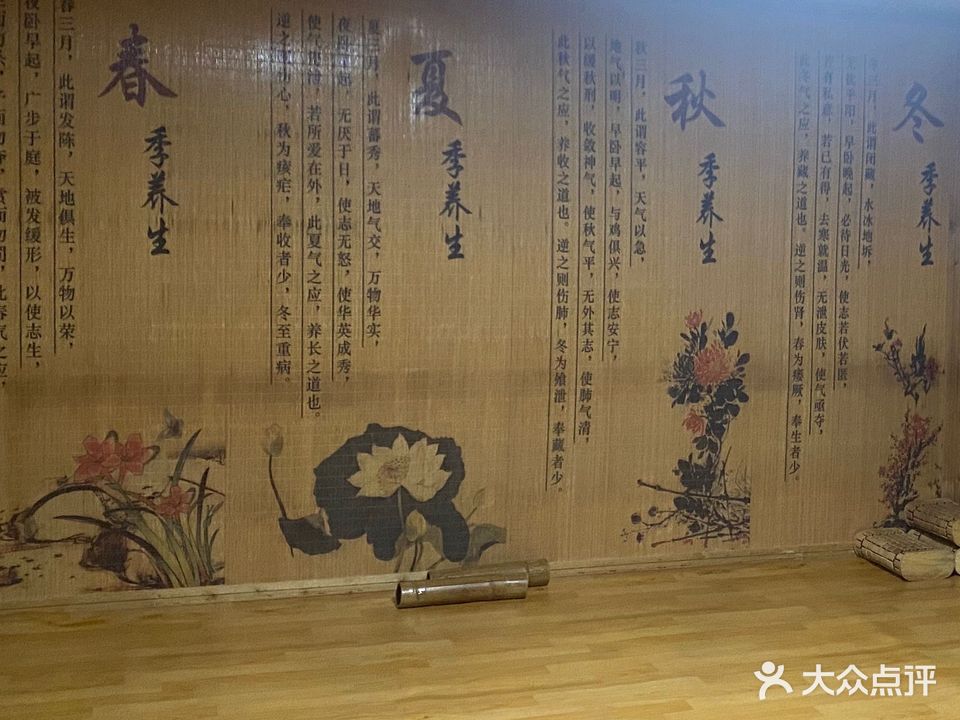 春
季养生
春三月，此谓发陈，天地俱生，万物以荣，
夜卧早起，广步于庭，被发缓形，以使志生，
而勿夺，赏而勿罚，此春气之应，
夏
季养生
夏三月，此谓蕃秀，天地气交，万物华实，
夜卧早起，无厌于日，使志无怒，使华英成秀，
使气得泄，若所爱在外，此夏气之应，养长之道也。
逆之则伤心，秋为痎疟，奉收者少，冬至重病。
秋
季养生
秋三月，此谓容平，天气以急，
地气以明，早卧早起，与鸡俱兴，使志安宁，
以缓秋刑，收敛神气，使秋气平，无外其志，使肺气清，
此秋气之应，养收之道也。逆之则伤肺，冬为飧泄，奉藏者少。
冬
季养生
冬三月，此谓闭藏，水冰地坼，
无扰乎阳，早卧晚起，必待日光，使志若伏若匿，
若有私意，若已有得，去寒就温，无泄皮肤，使气亟夺，
此冬气之应，养藏之道也。逆之则伤肾，春为痿厥，奉生者少。
大众点评